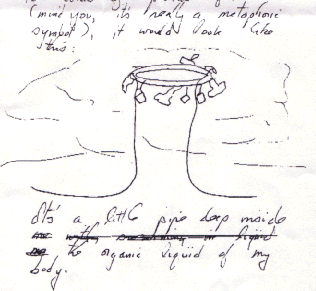 (mind you, it's really a metaphoric
symbol), it would look like
this:
It's a little pipe deep inside
in liquid
the organic liquid of my
body.